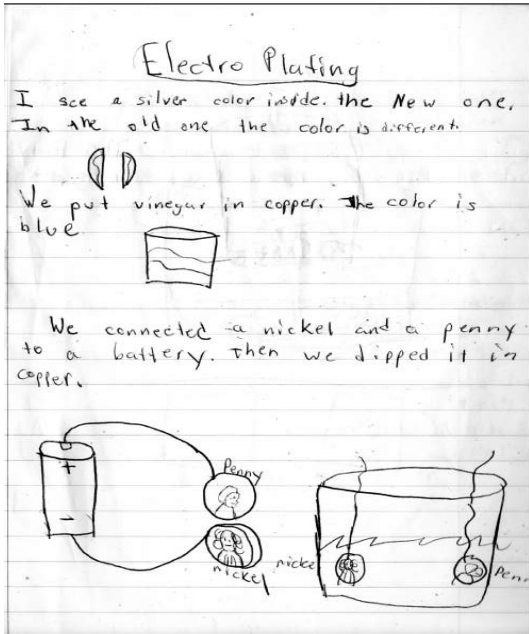 Electro Plating
I see a silver color inside. the New one.
In the old one the color is different.
We put vinegar in copper. The color is
blue
We connected a nickel and a penny
to a battery. Then we dipped it in
copper.
+
Penny
-
nickel
nicke
Penn